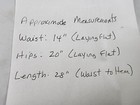 Approximate Measurements...
Waist: 14" (Laying flat)
Hips - 20" (Laying Flat)
Length: 28" (Waist to Hem)